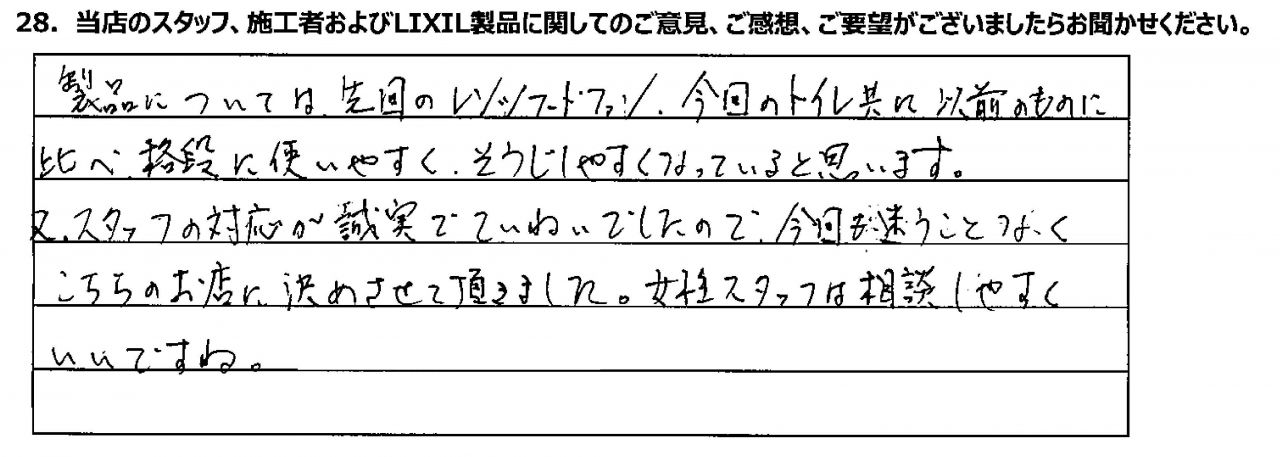 28. 当店のスタッフ、施工者およびLIXIL製品に関してのご意見、ご感想、ご要望がございましたらお聞かせください。
製品については、先回のレンジフードファン、今回のトイレ共に以前のものに
比べ、格段に使いやすく、そうじしやすくなっていると思います。
又、スタッフの対応が誠実でていねいでしたので、今回も迷うことなく
こちらのお店に決めさせて頂きました。女性スタッフは相談しやすく
いいですね。